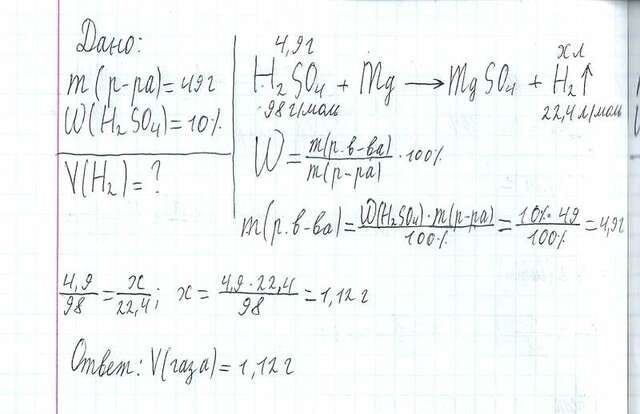 Дано:
m(р-ра)=49г
W(H₂SO₄)=10%
V(H₂)=?
4,9г
х л
H₂SO₄ + Mg → MgSO₄ + H₂↑
98 г/моль
22,4 л/моль
W = m(р.в-ва)/m(р-ра) · 100%
m(р.в-ва) = W(H₂SO₄)·m(р-ра)/100% = 10%·49/100% = 4,9г
4,9/98 = x/22,4; x = 4,9·22,4/98 = 1,12 г
Ответ: V(газа) = 1,12 г